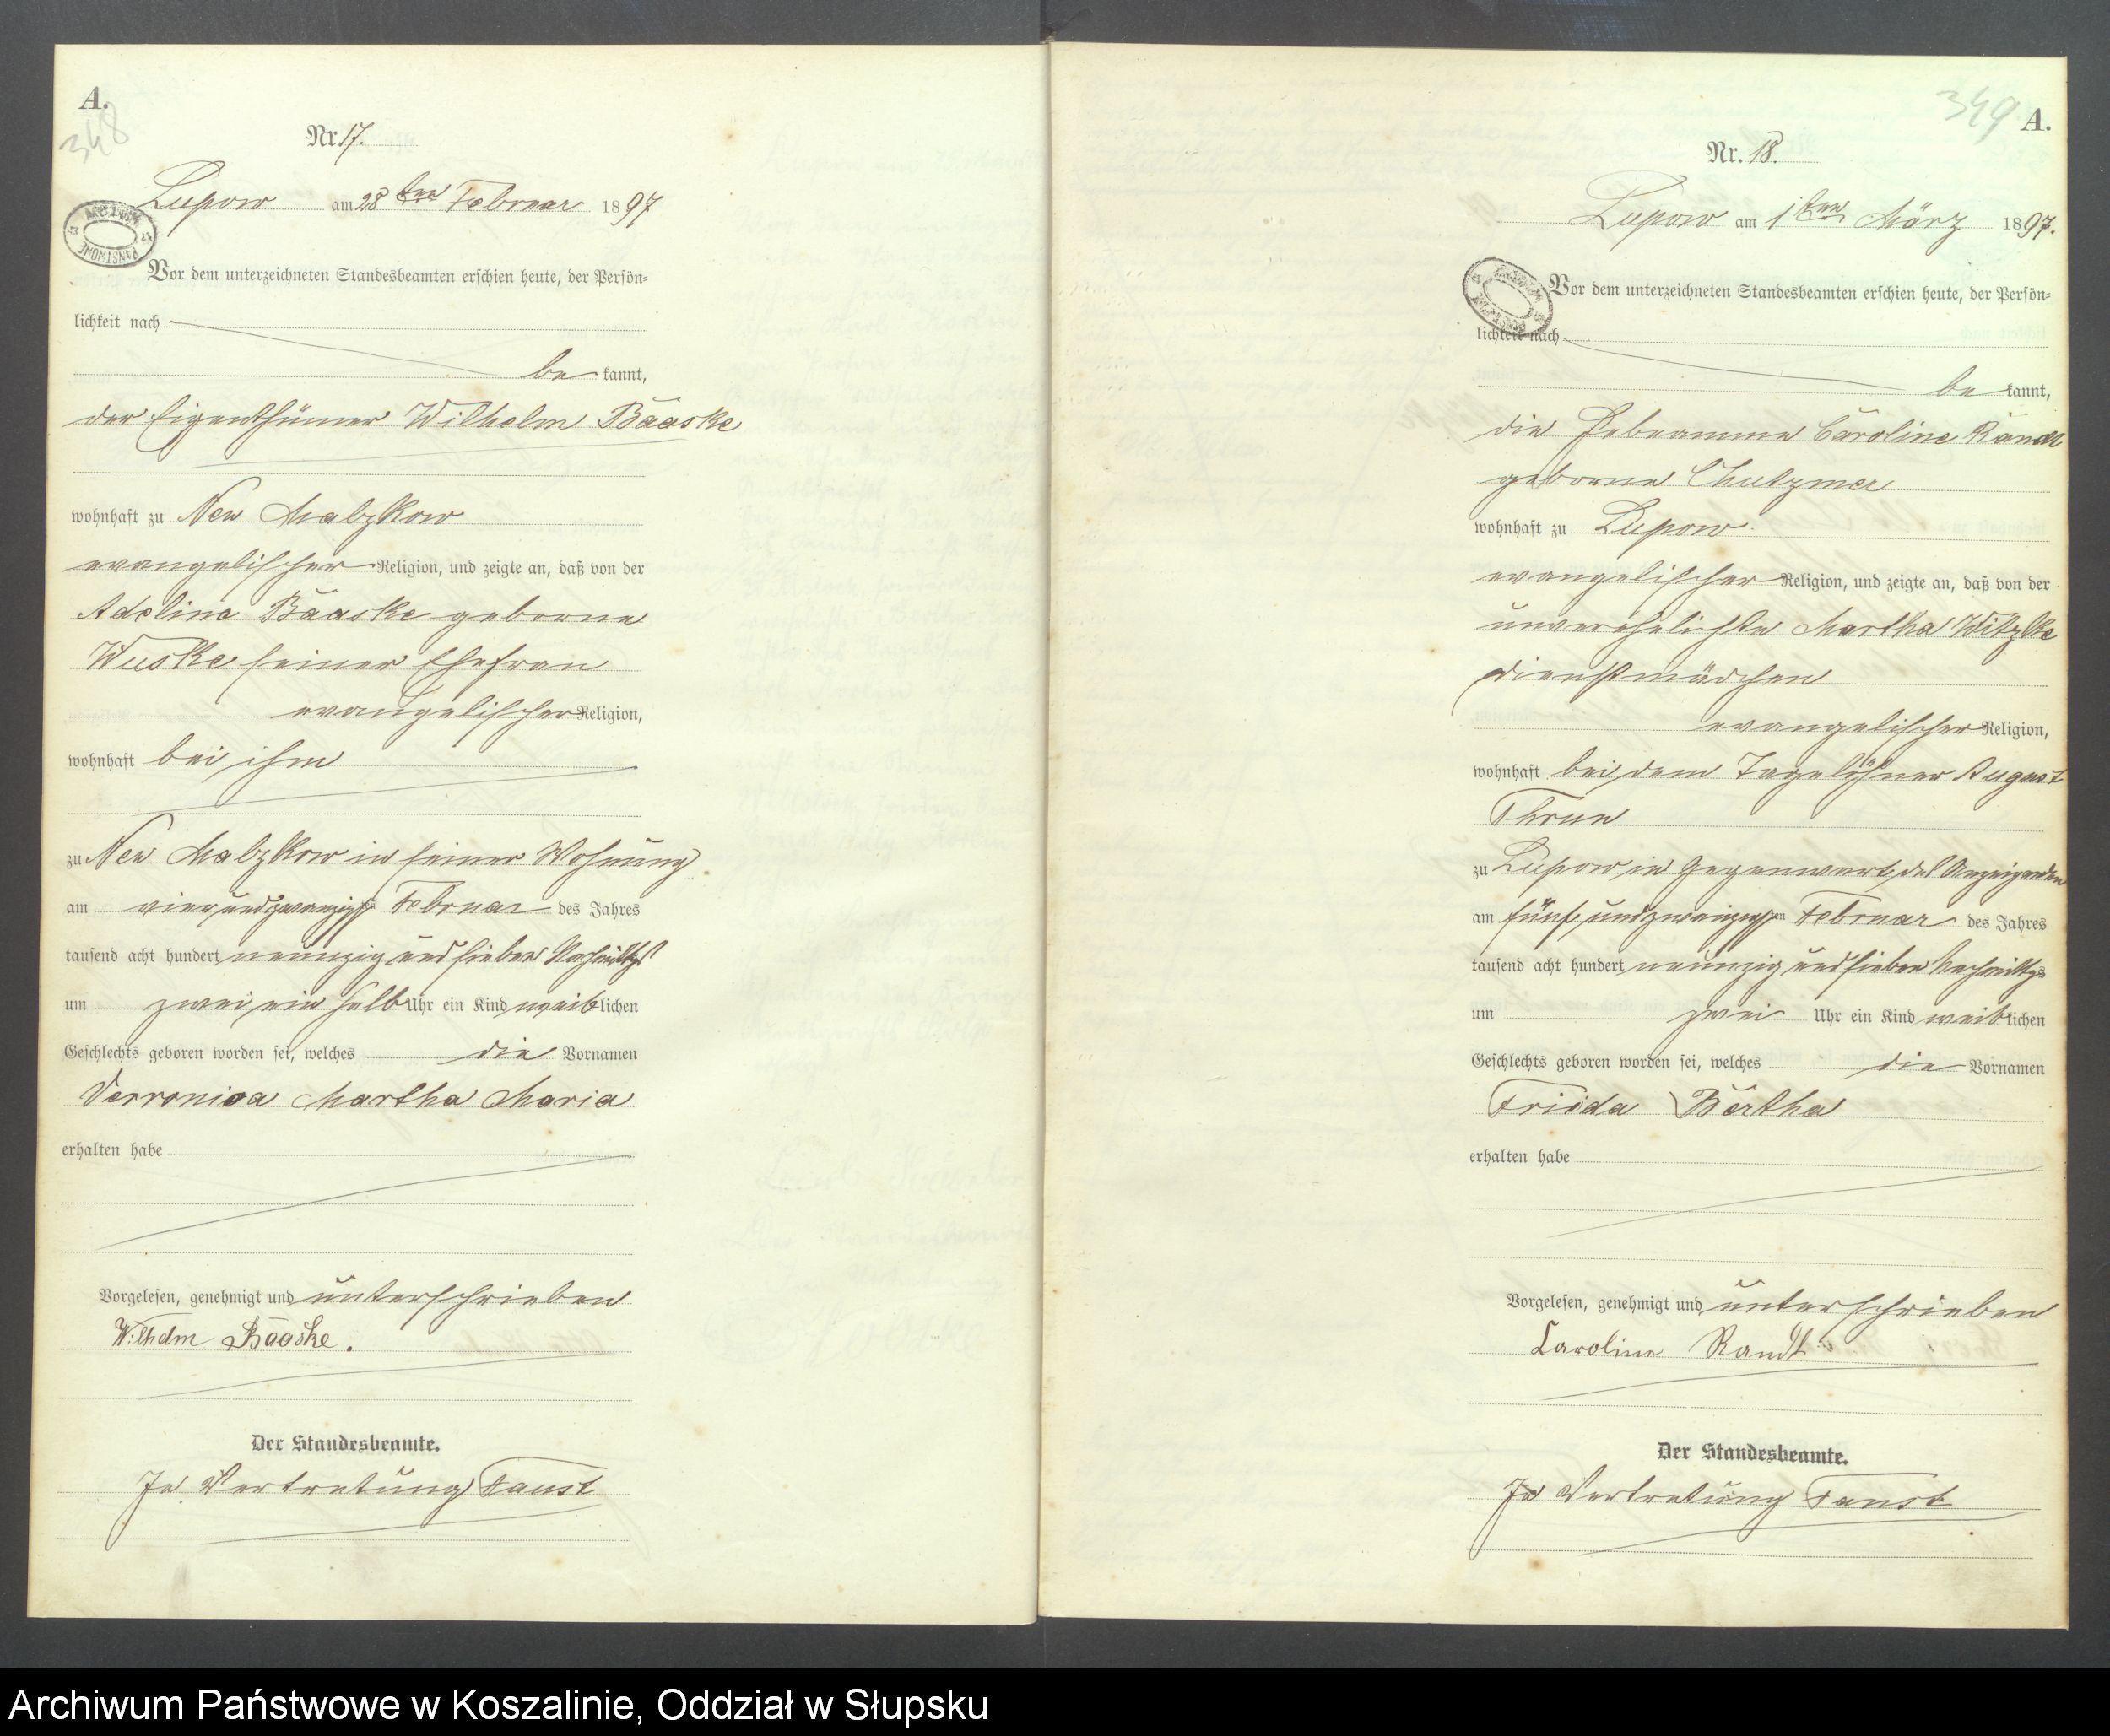 A.
348
Nr. 17.
Lupow am 28 ten Februar 1897
Vor dem unterzeichneten Standesbeamten erschien heute, der Persön-
lichkeit nach
be kannt,
der Eigenthümer Wilhelm Baaske
wohnhaft zu Neu Malzkow
evangelischer Religion, und zeigte an, daß von der
Adeline Baaske geborne
Wuske seiner Ehefrau
evangelischer Religion,
wohnhaft bei ihm
zu Neu Malzkow in seiner Wohnung
am vier und zwanzigsten Februar des Jahres
tausend acht hundert neunzig und sieben Nachmittags
um zwei ein halb Uhr ein Kind weiblichen
Geschlechts geboren worden sei, welches die Vornamen
Verronica Martha Maria
erhalten habe
Vorgelesen, genehmigt und unterschrieben
Wilhelm Baaske.
Der Standesbeamte.
In Vertretung Faust
349 A.
Nr. 18.
Lupow am 1 ten März 1897.
Vor dem unterzeichneten Standesbeamten erschien heute, der Persön-
lichkeit nach
be kannt,
die Hebeamme Caroline Randt
geborne
wohnhaft zu Lupow
evangelischer Religion, und zeigte an, daß von der
unverehelichte Martha Witzke
dienstmädchen
evangelischer Religion,
wohnhaft bei dem Tagelöhner August
Thrun
zu Lupow in Gegenwart der Anzeigenden
am fünf und zwanzigsten Februar des Jahres
tausend acht hundert neunzig und sieben Nachmittgs
um zwei Uhr ein Kind weiblichen
Geschlechts geboren worden sei, welches die Vornamen
Frieda Bertha
erhalten habe
Vorgelesen, genehmigt und unterschrieben
Caroline Randt
Der Standesbeamte.
In Vertretung Faust
Archiwum Państwowe w Koszalinie, Oddział w Słupsku